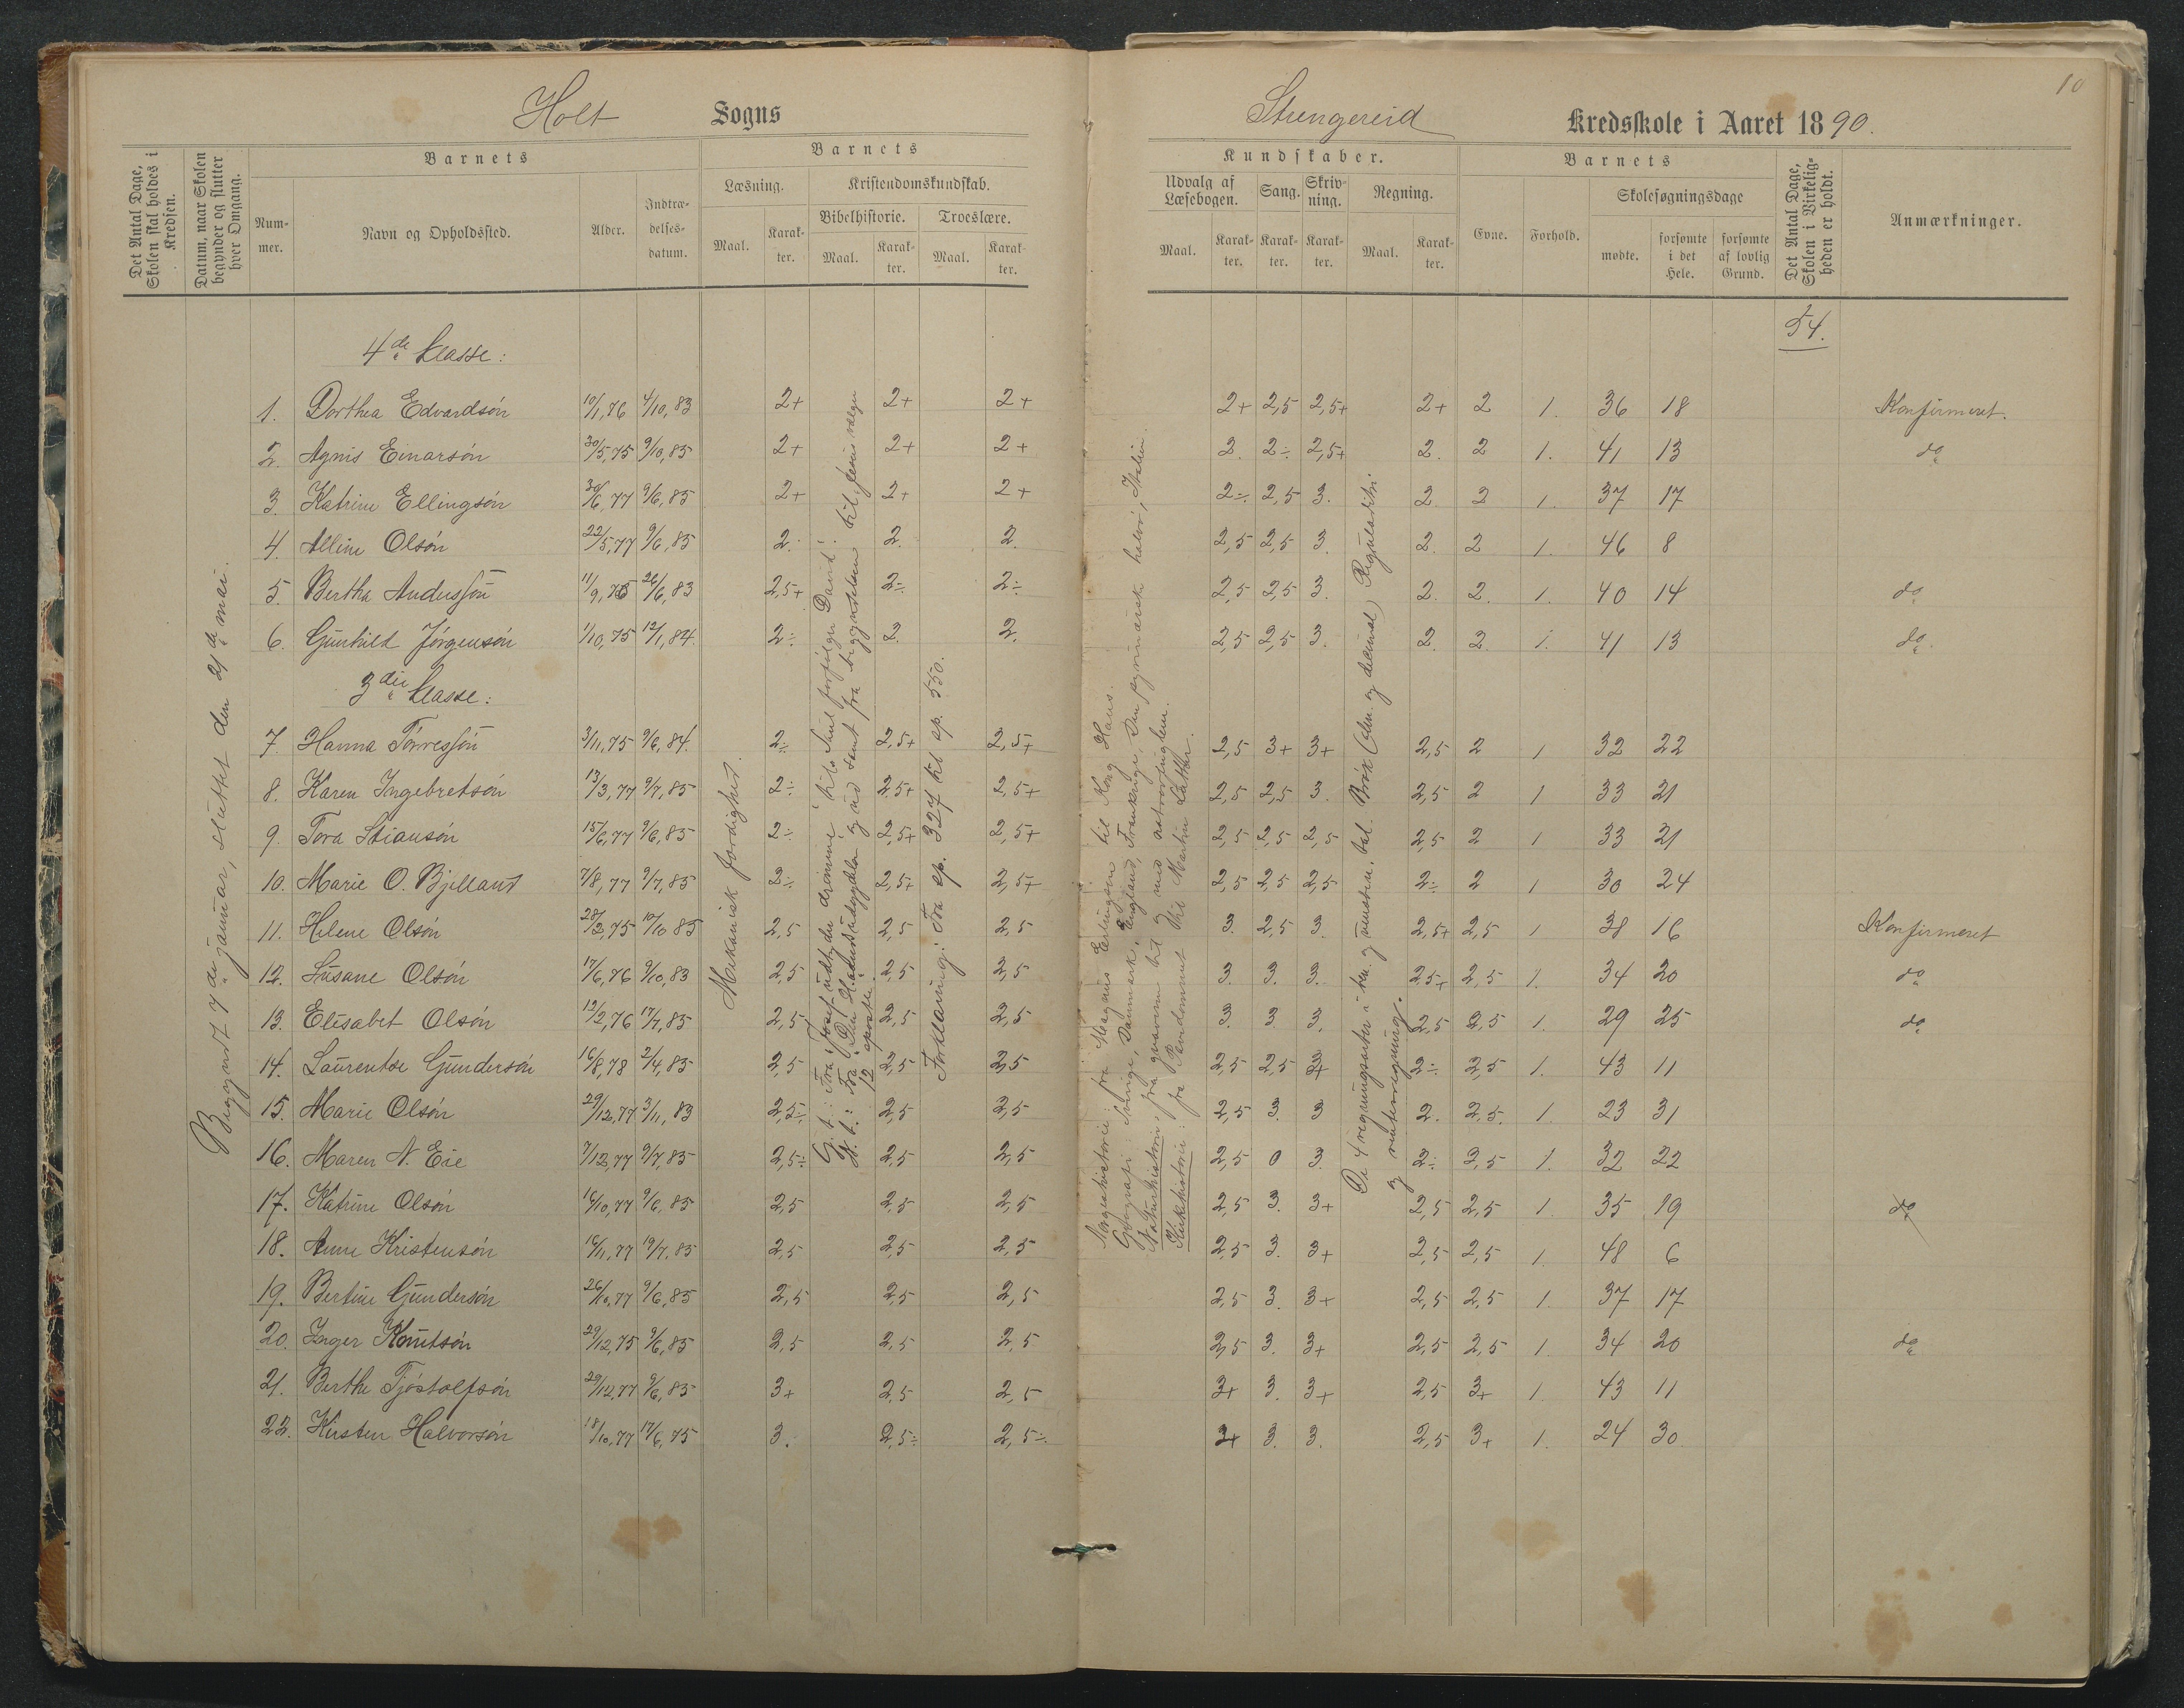 10
Holt Sogns
Strengereid Kredsskole i Aaret 1890.
Det Antal Dage, Skolen skal holdes i Kredsen.
Datum, naar Skolen begynder og slutter hver Omgang.
Barnets
Nummer.
Navn og Opholdssted.
Alder.
Indtrædelsesdatum.
Barnets
Læsning.
Kristendomskundskab.
Bibelhistorie.
Troeslære.
Maal.
Karakter.
Maal.
Karakter.
Maal.
Karakter.
Kundskaber.
Udvalg af Læsebogen.
Sang.
Skrivning.
Regning.
Maal.
Karakter.
Karakter.
Karakter.
Maal.
Karakter.
Barnets
Evne.
Forhold.
Skolesøgningsdage
mødte.
forsømte i det Hele.
forsømte af lovlig Grund.
Det Antal Dage, Skolen i Virkeligheden er holdt.
Anmærkninger.
54.
Begyndt 7de januar, sluttet den 21de mai.
Mekanisk færdighed.
Forklaring: Fra sp. 327 til sp. 550.
Kirkehistorie: fra Pavedommet til Martin Luther.
og renteregning.
4de klasse:
1. Dorthea Edvardsön 10/1,76 4/10,83 2+ 2+ 2+ 2+ 2,5 2,5+ 2+ 2 1. 36 18 Konfirmeret.
2. Agnis Einarsön 30/5,75 9/10,85 2+ 2+ 2+ 2. 2÷ 2,5+ 2. 2 1. 41 13 do
3. Katrine Ellingsön 30/6,77 9/6,85 2+ 2+ 2+ 2÷ 2,5 3. 2 2 1. 37 17
4. Alline Olsön 22/5,77 9/6,85 2. 2. 2. 2,5 2,5 3. 2. 2 1. 46 8
5. Bertha Andersson 11/9,75 26/6,83 2,5+ 2÷ 2÷ 2,5 2,5 3. 2. 2. 1. 40 14 do
6. Gunhild Jörgensön 1/10,75 12/1,84. 2÷ 2. 2. 2,5 2,5 3. 2. 2. 1. 41 13 do
3die klasse:
7. Hanna Törressön 3/11,75 9/6,84. 2÷ 2,5+ 2,5+ 2,5 3+ 3+ 2,5 2 1 32 22
8. Karen Ingebretsön 13/3,77 9/7,85 2÷ 2,5+ 2,5+ 2,5 2,5 3. 2,5 2 1 33 21
9. Tora Stiansön 15/6,77 9/6,85 2÷ 2,5+ 2,5+ 2,5 2,5 2,5 2,5 2 1 33 21
10. Marie O. Bjelland 7/8,77 9/7,85 2÷ 2,5+ 2,5+ 2,5 2,5 2,5 2÷ 2 1 30 24
11. Helene Olsön 28/3,75 10/10 85 2,5 2,5 2,5 3. 2,5 3. 2,5+ 2,5 1 38 16 Konfirmeret
12. Susane Olsön 17/6,76 9/10,83 2,5 2,5 2,5 3. 3. 3. 2,5+ 2,5 1. 34 20 do
13. Elisabet Olsön 12/2,76 17/7,85 2,5 2,5 2,5 3. 3. 3. 2,5 2,5 1. 29 25 do
14. Laurentse Gundersön 16/8,78 2/4,85 2,5 2,5 2,5 2,5 2,5 3+ 2÷ 2,5 1. 43 11
15. Marie Olsön 29/12,77 3/11,83 2,5÷ 2,5 2,5 2,5 3. 3 2. 2,5. 1. 23 31
16. Maren N. Eie 7/12,77 9/7,85 2,5÷ 2,5 2,5 2,5 0 3. 2÷ 2,5 1. 32 22
17. Katrine Olsön 16/10,77 9/6,85 2,5 2,5 2,5 2,5 3. 3+ 2,5 2,5 1. 35 19 do
18. Anne Kristensön 16/11,77 19/7,85 2,5 2,5 2,5 2,5 3. 3+ 2,5 2,5 1. 48 6
19. Bertine Gundersön 26/10,77 9/6,85 2,5 2,5 2,5 2,5 3. 3+ 2,5 2,5 1. 37 17
20. Inger Knutsön 29/12,75 9/6,85 2,5 2,5 2,5 2,5 3. 3+ 2,5 2,5 1. 34 20 do
21. Berthe Tjöstolfsön 29/12,77 9/6,85 3+ 2,5 2,5 3+ 3. 3+ 2,5 3+ 1. 43 11
22. Kirsten Halvorsön 18/10,77 17/6,75 3. 2,5÷ 2,5÷ 3+ 3. 3. 2,5 3+ 1. 24 30